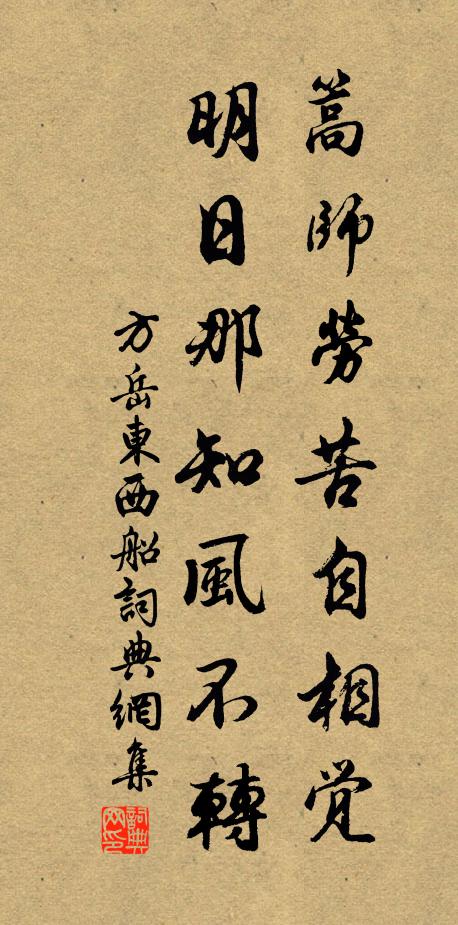 篙師勞苦自相覚
明日那知風不轉
方岳東西船詞典網集
詞典網印